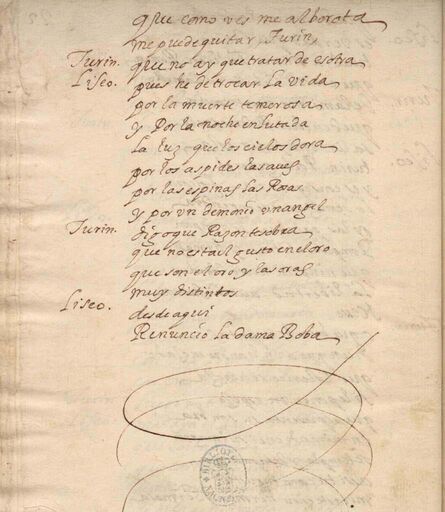 que como ves me alborota
me puede quitar, Turin,
Turin. que no ay que tratar de esotra
Liseo. pues he de trocar La vida
por la muerte temerosa
y Por la noche enlutada
La luz que los cielos dora
por los aspides las aues
por las espinas las Rosas
y por vn demonio vn angel
Turin. digo que Razon te sobra
que no esta el gusto en el oro
que son el oro y las oras
muy distintos
Liseo. desde aqui
Renuncio La dama Boba